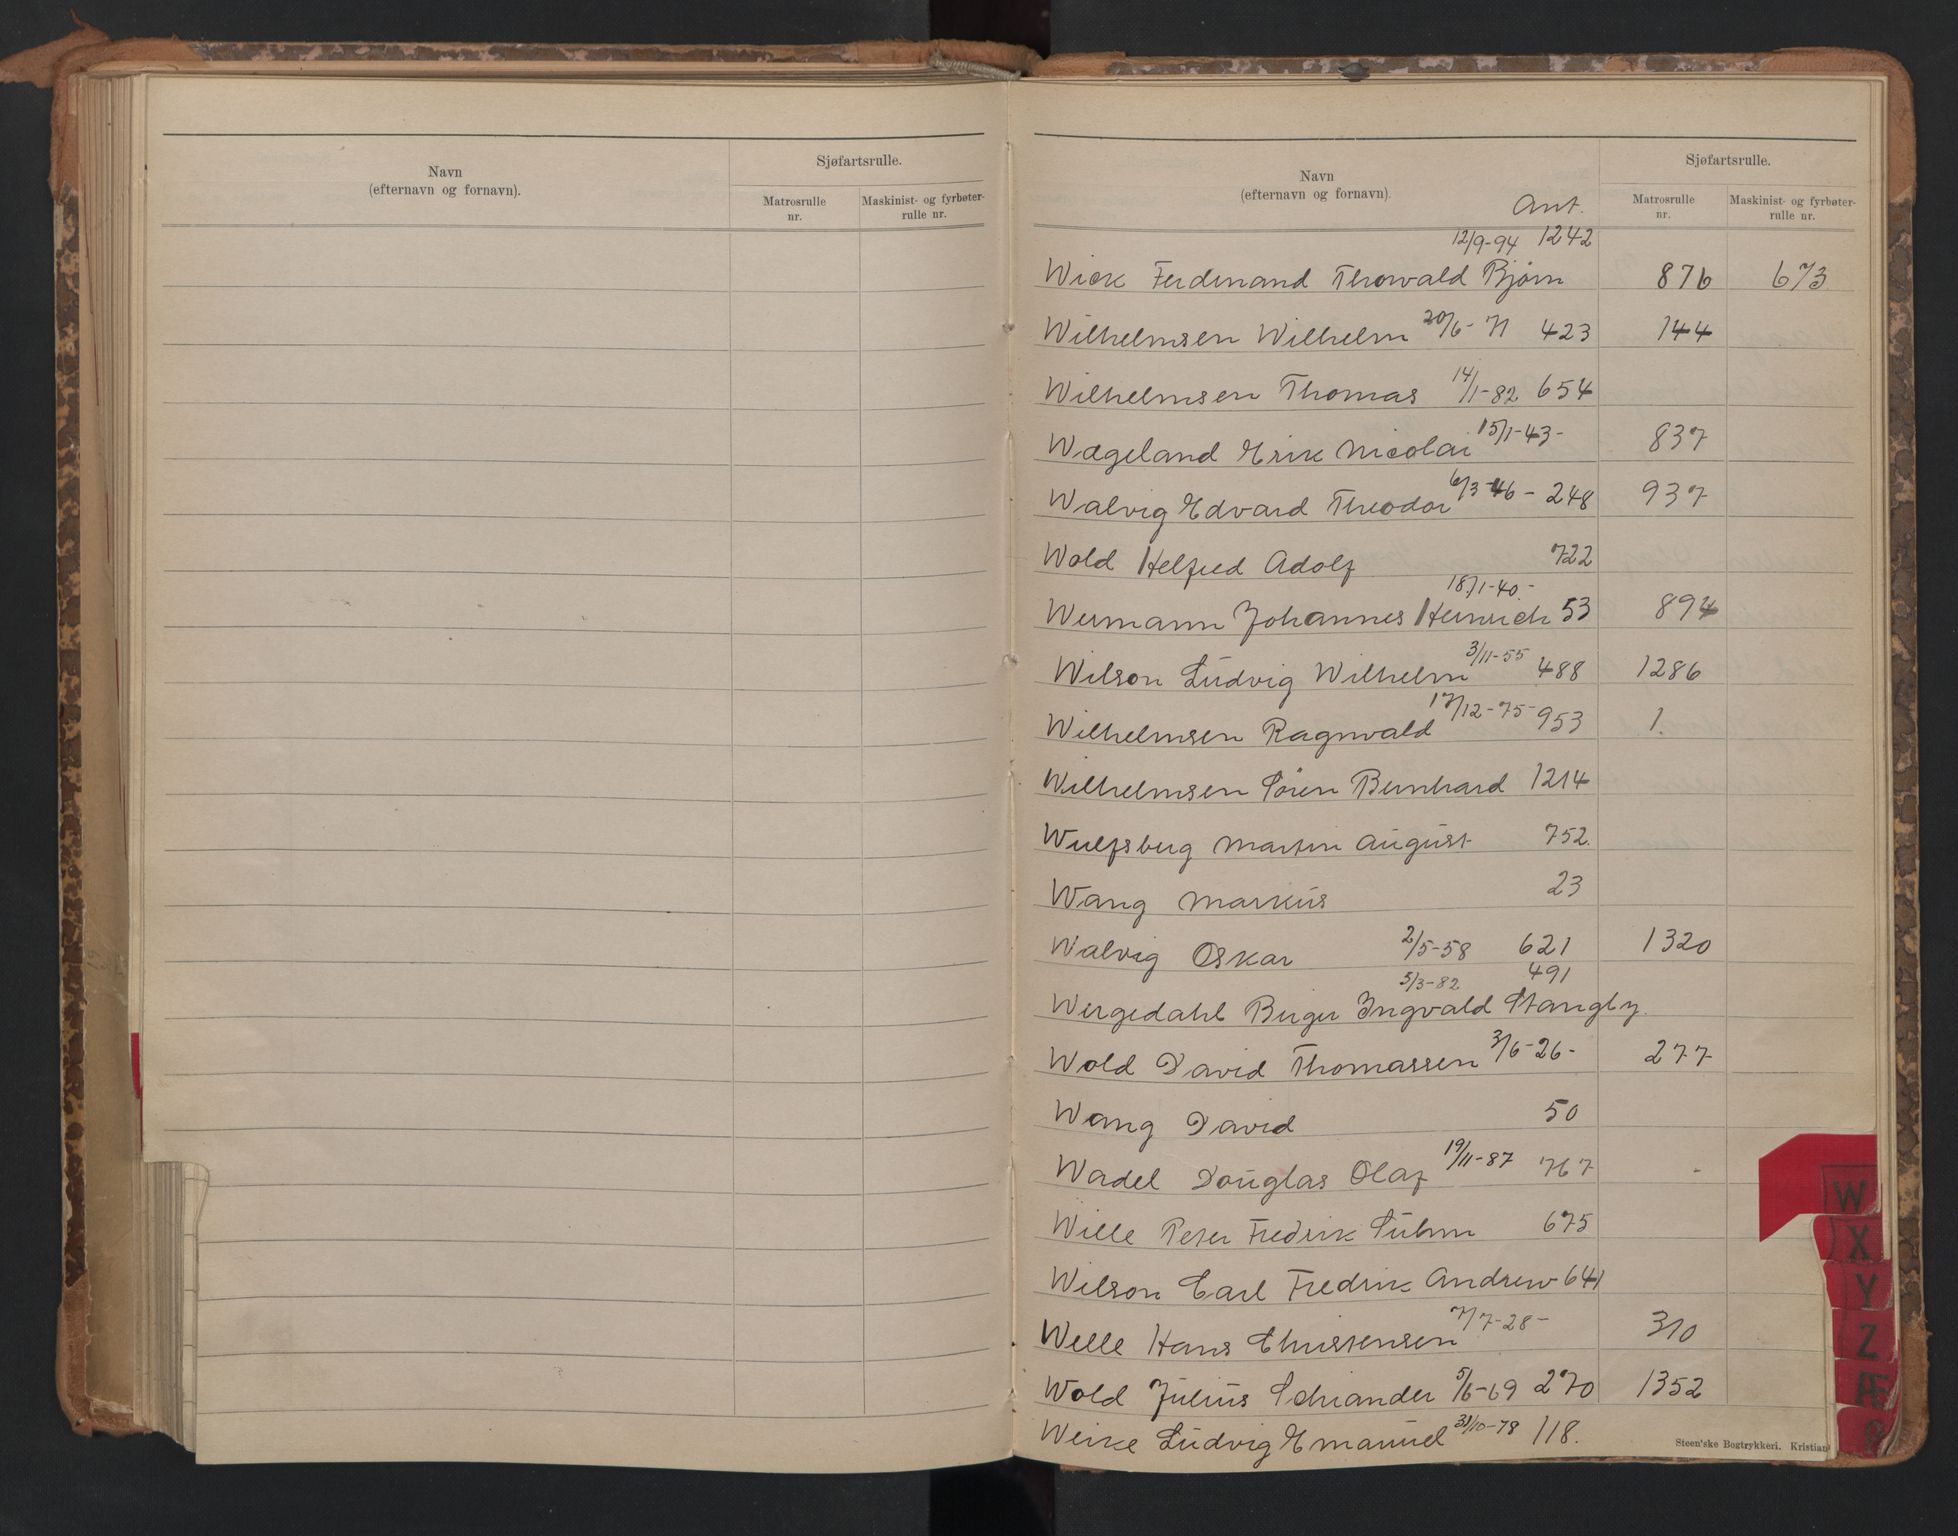 Navn
(efternavn og fornavn).
Sjøfartsrulle.
Matrosrulle
nr.
Maskinist- og fyrbøter-
rulle nr.
Navn
(efternavn og fornavn).
Ant.
Sjøfartsrulle.
Matrosrulle
nr.
Maskinist- og fyrbøter-
rulle nr.
12/9-94 1242
Wick Ferdinand Thorvald Bjørn 876 673
Wilhelmsen Wilhelm 20/6-71 423 144
Wilhelmsen Thomas 14/1-82 654
Wægeland Erik Nicolai 15/1-43- 837
Walvig Edvard Theodor 6/3-46- 248 937
Wold Helfred Adolf 722
18/1-40-
Weimann Johannes Heinrich 53 894
Wilson Ludvig Wilhelm 3/11-55 488 1286
Wilhelmsen Ragnvald 17/12-75- 953 1.
Wilhelmsen Søren Bernhard 1214
Wulfsberg Martin August 752.
Wang Markus 23
Walvig Oskar 2/5-58 621 1320
5/3-82 491
Wergedahl Birger Ingvald Stangby.
Wold David Thomassen 3/6-26- 277
Wang David 50
Wadel Douglas Olaf 19/11-87 767
Wille Peter Fredrik Suhm 675
Wilson Carl Fredrik Andrew 641
Wille Hans Christensen 7/7-28- 310
Wold Julius Schiander 5/6-69 270 1352
Weike Ludvig Emanuel 31/10-78 118.
Steen'ske Bogtrykkeri. Kristian
W
X
Y
Z
Æ